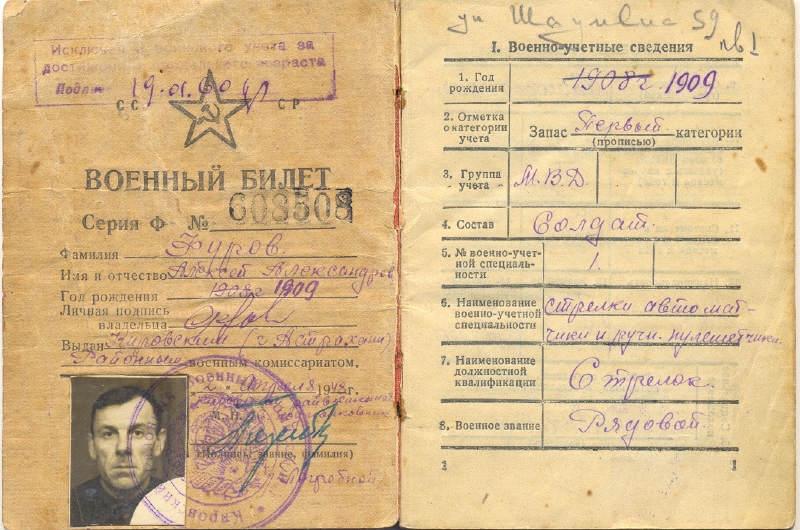 Исключен с воинского учета за
достижением предельного возраста
Подп. 19.01.60
СССР
ВОЕННЫЙ БИЛЕТ
Серия Ф- № 608508
Фамилия Фуров
Имя и отчество Алексей Александров
Год рождения 1908г 1909
Личная подпись
владельца
Выдан Кировским (г Астрахани)
Районным военным комиссариатом.
Апреля 8 1948 г.
М. П.
(Подпись, звание, фамилия)
Погребной
ул Шаумяна 59
кв 1
I. Военно-учетные сведения
1. Год рождения 1908г. 1909
2. Отметка о категории учета Запас Первый категории
(прописью)
3. Группа учета М.В.Д.
4. Состав Солдат.
5. № военно-учетной специальности 1.
6. Наименование военно-учетной специальности стрелки автомат-
чики и ручн. пулеметчики.
7. Наименование должностной квалификации Стрелок.
8. Военное звание Рядовой
1